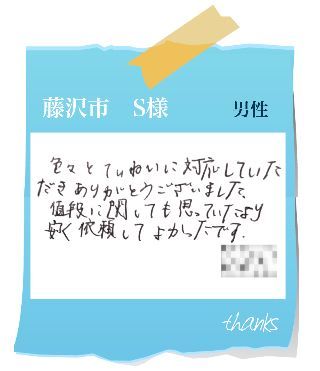 藤沢市 S様 男性
色々とていねいに対応していた
だきありがとうございました。
値段に関しても思っていたより
安く依頼してよかったです.
thanks